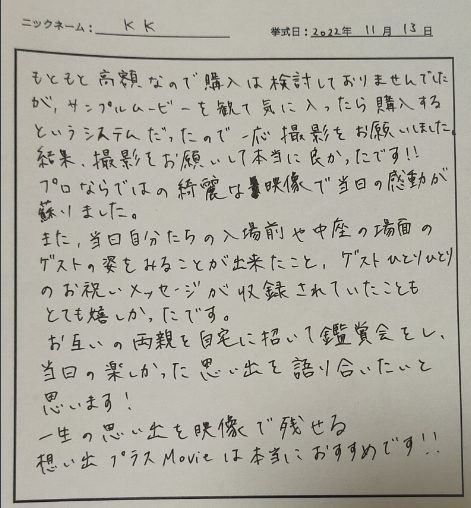 ニックネーム: KK 挙式日: 2022年 11月 13日
もともと高額なので購入は検討しておりませんでした
が、サンプルムービーを観て気に入ったら購入する
というシステムだったので一応撮影をお願いしました。
結果、撮影をお願いして本当に良かったです!!
プロならではの綺麗な映像で当日の感動が
蘇りました。
また、当日自分たちの入場前や中座の場面の
ゲストの姿をみることが出来たこと、ゲストひとりひとり
のお祝いメッセージが収録されていたことも
とても嬉しかったです。
お互いの両親を自宅に招いて鑑賞会をし、
当日の楽しかった思い出を語り合いたいと
思います!
一生の思い出を映像で残せる
想い出プラスMovieは本当におすすめです!!